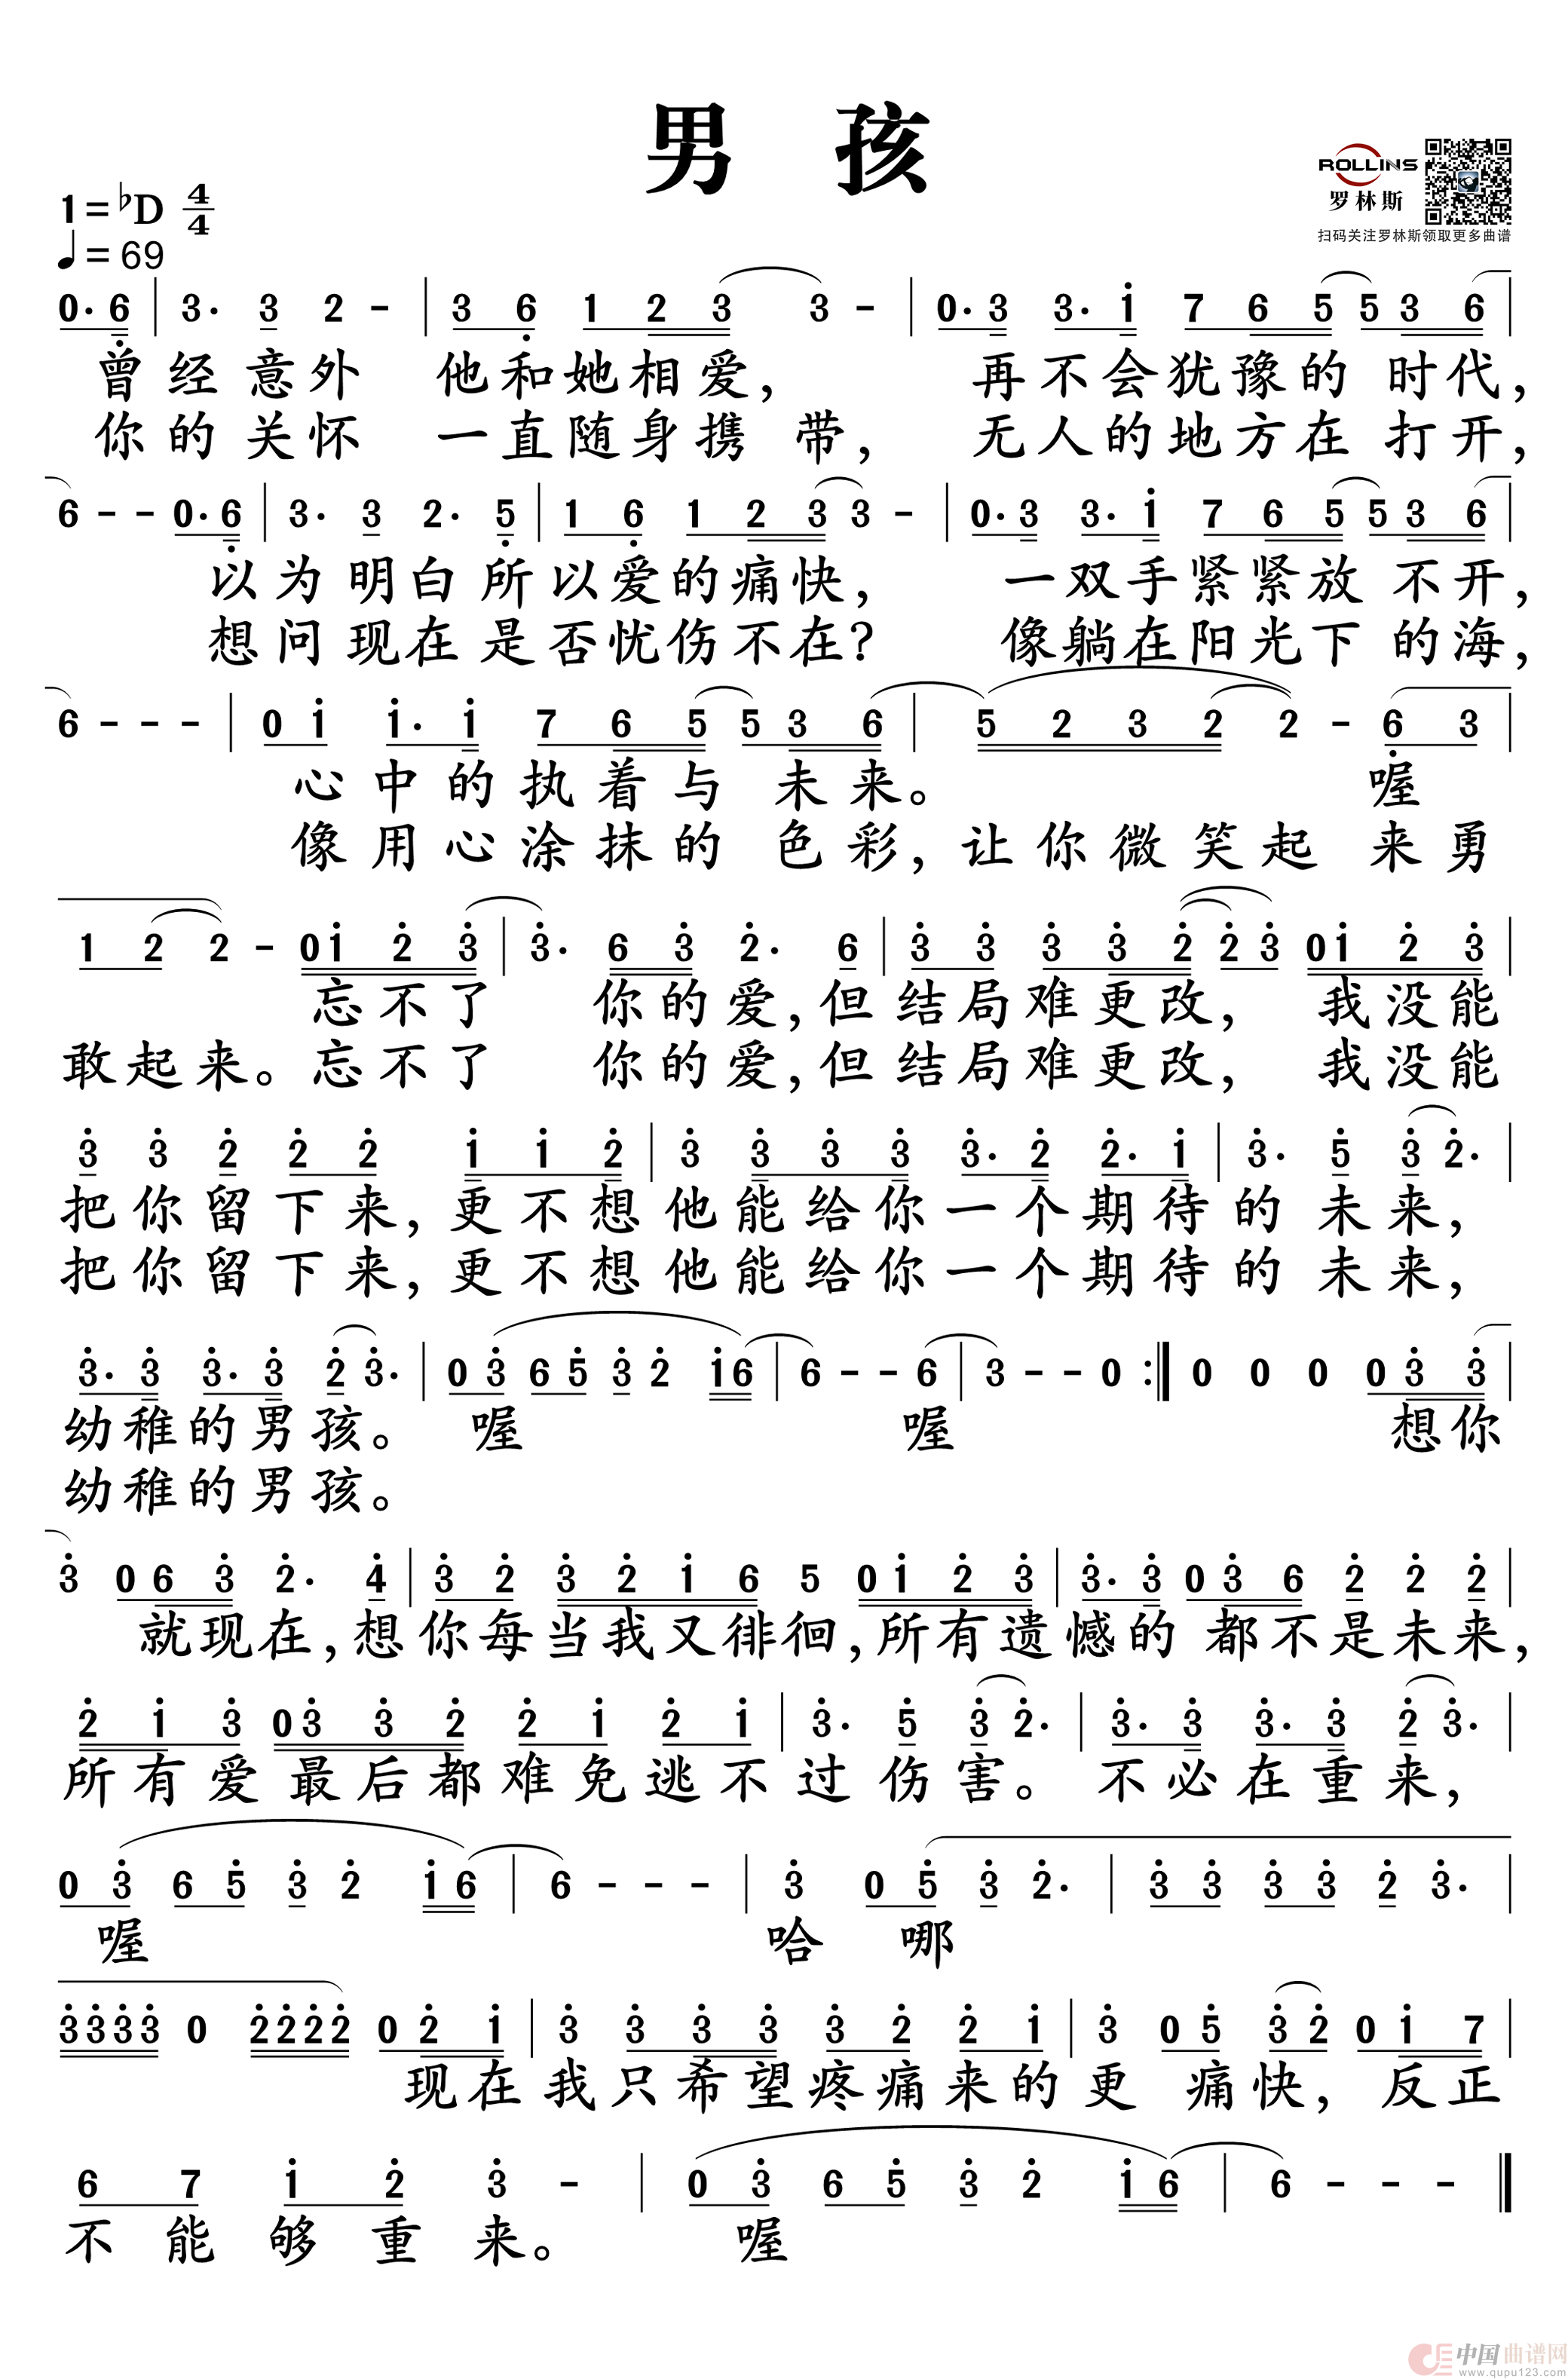 男 孩
ROLLINS
罗林斯
扫码关注罗林斯领取更多曲谱
1=♭D 4/4
♩=69
0· 6 | 3· 3 2 - | 3 6 1 2 3 3 - | 0· 3 3· 1 7 6 5 5 3 6 |
曾经意外 他和她相爱, 再不会犹豫的 时代,
你的关怀 一直随身携 带, 无人的地方在 打开,
6 - - 0· 6 | 3· 3 2· 5 | 1 6 1 2 3 3 - | 0· 3 3· 1 7 6 5 5 3 6 |
以为明白所以爱的痛快, 一双手紧紧放 不开,
想问现在是否忧伤不在? 像躺在阳光下 的海,
6 - - - | 0 1 1· 1 7 6 5 5 3 6 | 5 2 3 2 2 - 6 3 |
心中的执着与 未来。 喔
像用心涂抹的 色彩, 让你微笑起 来勇
1 2 2 - 0 1 2 3 | 3· 6 3 2· 6 | 3 3 3 3 2 2 3 0 1 2 3 |
忘不了 你的爱, 但结局难更改, 我没能
敢起来。忘不了 你的爱, 但结局难更改, 我没能
3 3 2 2 2 1 1 2 | 3 3 3 3 3· 2 2· 1 | 3· 5 3 2· |
把你留下来, 更不想他能给你一个期待的未来,
把你留下来, 更不想他能给你一个期待的未来,
3· 3 3· 3 2 3· | 0 3 6 5 3 2 1 6 | 6 - - 6 | 3 - - 0 :| 0 0 0 0 3 3 |
幼稚的男孩。 喔 喔 想你
幼稚的男孩。
3 0 6 3 2· 4 | 3 2 3 2 1 6 5 0 1 2 3 | 3· 3 0 3 6 2 2 2 |
就现在, 想你每当我又徘徊, 所有遗憾的 都不是未来,
2 1 3 0 3 3 2 2 1 2 1 | 3· 5 3 2· | 3· 3 3· 3 2 3· |
所有爱 最后都难免逃不过伤害。 不必在重来,
0 3 6 5 3 2 1 6 | 6 - - - | 3 0 5 3 2· | 3 3 3 3 2 3· |
喔 哈 哪
3 3 3 3 0 2 2 2 2 0 2 1 | 3 3 3 3 3 2 2 1 | 3 0 5 3 2 0 1 7 |
现在我只希望疼痛来的更 痛快, 反正
6 7 1 2 3 - | 0 3 6 5 3 2 1 6 | 6 - - - ‖
不能够重来。 喔
中国曲谱网
www.qupu123.com